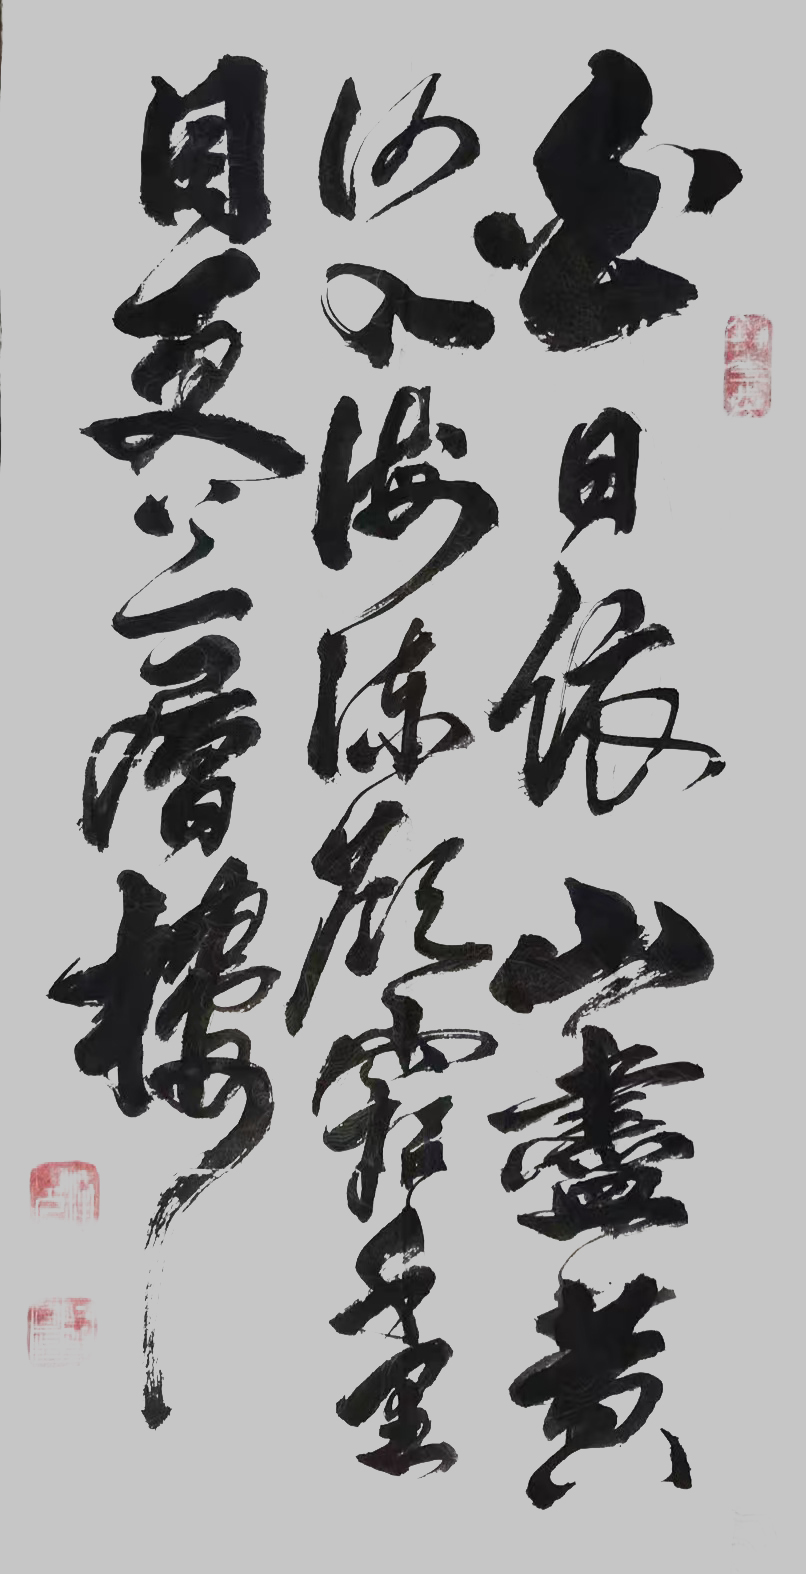 白日依山盡黃
河入海流欲窮千里
目更上一層樓